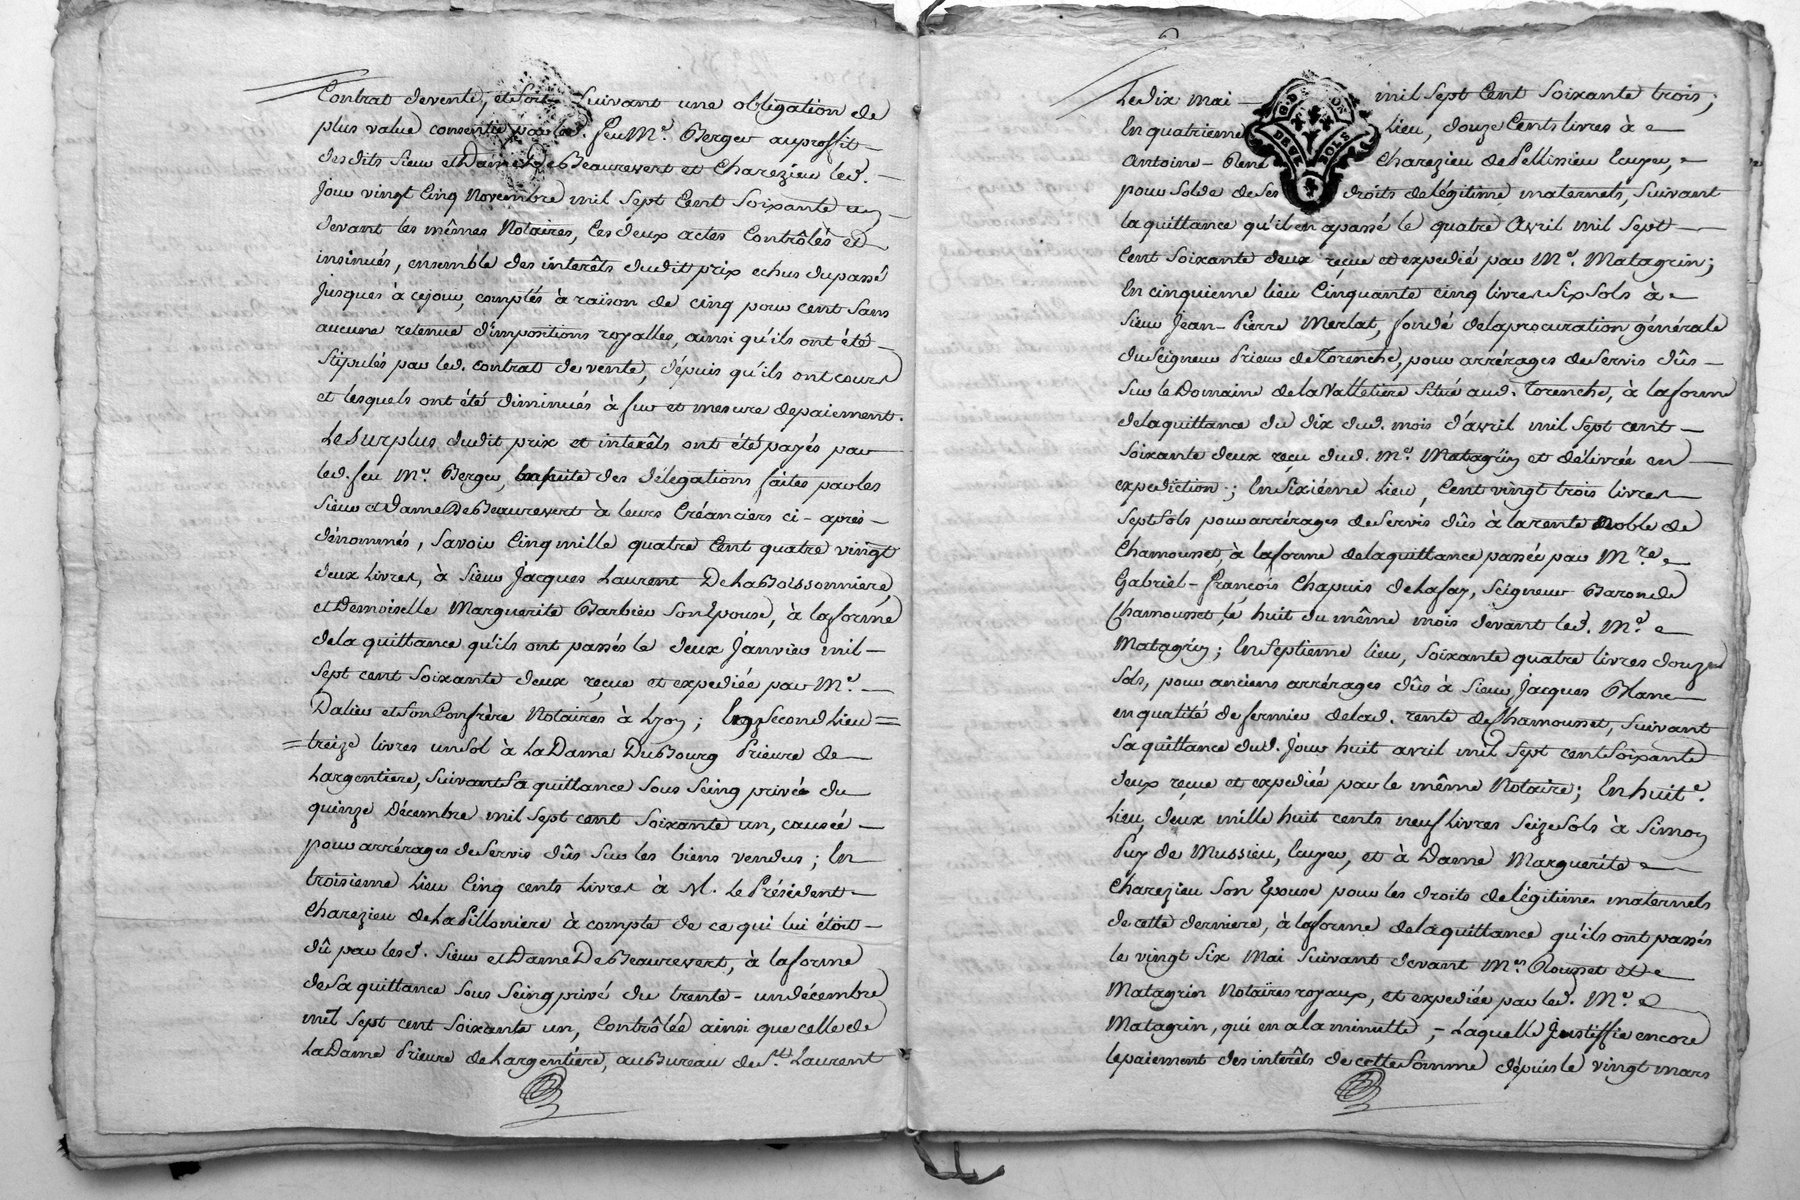 Contrat de vente, et soit suivant une obligation de
plus value consentie par led. feu Me. Berger au proffit
desdits Sieur et Dame De Beaurevert et Charezieu led.
jour vingt cinq Novembre mil sept cent soixante un
devant les mêmes Notaires, ces deux actes Contrôlés et
insinués, ensemble des interêts dudit prix echus du passé
jusques à ce jour, comptés à raison de cinq pour cent sans
aucune retenue d'impositions royalles, ainsi qu'ils ont été
stipulés par led. contrat de vente, dépuis qu'ils ont cours
et lesquels ont été diminués à fur et mesure de paiement.
Le surplus dudit prix et interêts ont été payés par
led. feu Me. Berger, ensuite des délégations faites par les
Sieur et Dame De Beaurevert à leurs Créanciers ci-après
dénommés, savoir Cinq mille quatre cent quatre vingt
deux livres, à Sieur Jacques Laurent De la Boissonniere
et Demoiselle Marguerite Barbier son Epouse, à la forme
de la quittance qu'ils ont passés le deux Janvier mil
sept cent soixante deux reçue et expediée par Me.
Dalier et son Confrère Notaires à Lyon; En second Lieu =
= treize livres un sol à La Dame DuBourg Prieure de
Largentiere, suivant sa quittance sous seing privé du
quinze Décembre mil sept cent soixante un, causée
pour arrérages de servis dûs sur les biens vendus; En
troisieme Lieu Cinq cents Livres à M. Le Président
Charezieu de La Pilloniere à compte de ce qui lui étoit
dû par lesd. Sieur et Dame De Beaurevert, à la forme
de sa quittance sous seing privé du trente-un décembre
mil sept cent soixante un, Contrôlée ainsi que celle de
La Dame Prieure de Largentière, au Bureau de St. Laurent
Le dix mai mil sept Cent Soixante trois;
En quatrieme Lieu, douze Cents livres à
Antoine-René Charezieu de Pellissieu Ecuyer,
pour solde de ses droits de légitime maternels, suivant
la quittance qu'il en a passé le quatre Avril mil sept
cent soixante deux reçue et expedié par Me. Matagrin;
En cinquieme lieu Cinquante cinq livres six sols à
Sieur Jean-Pierre Merlat, fondé de la procuration générale
du Seigneur Prieur de Torenche, pour arrérages de servis dûs
sur le Domaine de la Valletiere situé aud. Torenche, à la forme
de la quittance du dix dud. mois d'avril mil sept cent
soixante deux reçu dud. Me. Matagrin et délivrée en
expediction; En sixiéme Lieu, Cent vingt trois livres
sept sols pour arrérages de servis dûs à la rente noble de
Chamousset, à la forme de la quittance passée par Mre.
Gabriel-François Chapuis de Lafay, Seigneur Baron de
Chamousset, le huit du même mois devant led. Me.
Matagrin; En septieme lieu, soixante quatre livres douze
sols, pour anciens arrérages dûs à Sieur Jacques Blanc
en qualité de fermier de lad. rente de Chamousset, suivant
sa quittance dud. jour huit avril mil sept cent soixante
deux reçue et expediée par le même Notaire; En huite.
Lieu, deux mille huit cents neuf Livres seize sols à Simon
Puy de Mussieu, Ecuyer, et à Dame Marguerite
Charezieu son Epouse pour les droits de légitimes maternels
de cette derniere, à la forme de la quittance qu'ils ont passés
le vingt six Mai suivant devant Mes. Rousset et
Matagrin Notaires royaux, et expediée par led. Me.
Matagrin, qui en a la minutte, laquelle justiffie encore
le paiement des interêts de cette somme dépuis le vingt mars